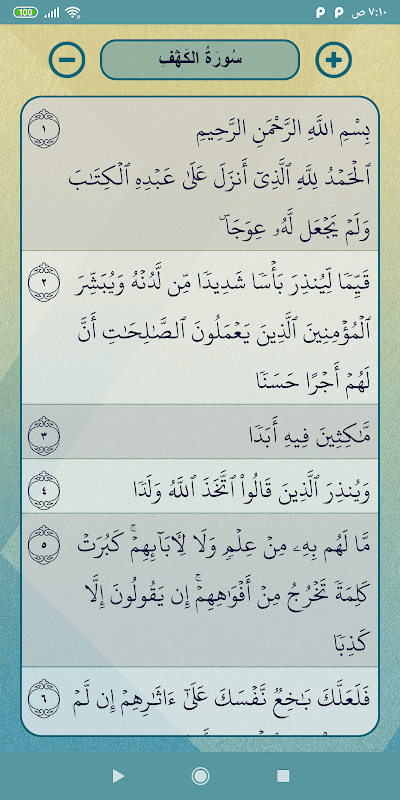 100
٧:١٠ ص
سُورَةُ الكَهْفِ
بِسْمِ اللَّهِ الرَّحْمَٰنِ الرَّحِيمِ ١
ٱلْحَمْدُ لِلَّهِ ٱلَّذِىٓ أَنزَلَ عَلَىٰ عَبْدِهِ ٱلْكِتَٰبَ
وَلَمْ يَجْعَل لَّهُۥ عِوَجَاۜ
قَيِّمًا لِّيُنذِرَ بَأْسًا شَدِيدًا مِّن لَّدُنْهُ وَيُبَشِّرَ ٢
ٱلْمُؤْمِنِينَ ٱلَّذِينَ يَعْمَلُونَ ٱلصَّٰلِحَٰتِ أَنَّ
لَهُمْ أَجْرًا حَسَنًا
مَّٰكِثِينَ فِيهِ أَبَدًا ٣
وَيُنذِرَ ٱلَّذِينَ قَالُوا۟ ٱتَّخَذَ ٱللَّهُ وَلَدًا ٤
مَّا لَهُم بِهِۦ مِنْ عِلْمٍ وَلَا لِءَابَآئِهِمْ ۚ كَبُرَتْ ٥
كَلِمَةً تَخْرُجُ مِنْ أَفْوَٰهِهِمْ ۚ إِن يَقُولُونَ إِلَّا
كَذِبًا
فَلَعَلَّكَ بَٰخِعٌ نَّفْسَكَ عَلَىٰٓ ءَاثَٰرِهِمْ إِن لَّمْ ٦